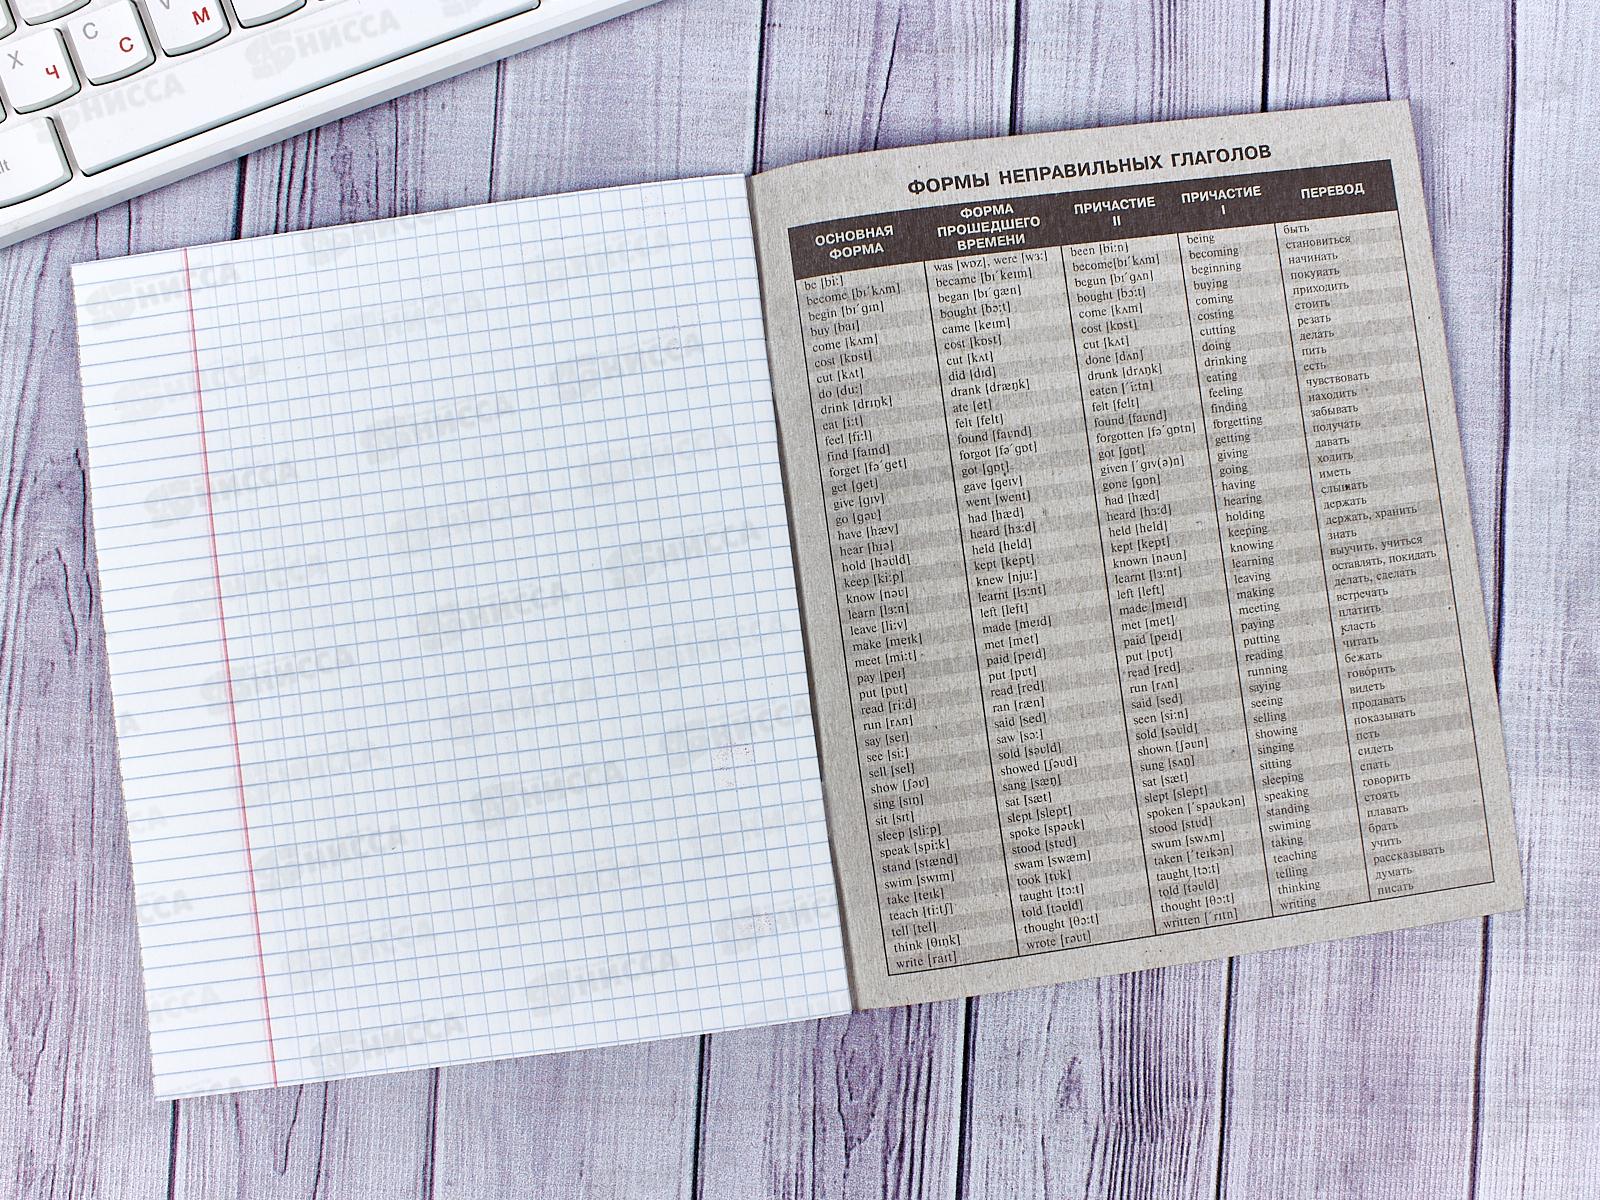 ФОРМЫ НЕПРАВИЛЬНЫХ ГЛАГОЛОВ
ОСНОВНАЯ ФОРМА ФОРМА ПРОШЕДШЕГО ВРЕМЕНИ ПРИЧАСТИЕ II ПРИЧАСТИЕ I ПЕРЕВОД
be [bi:] was [wɒz], were [wɜ:] been [bi:n] being быть
become [bɪ´kʌm] became [bɪ´keɪm] become[bɪ´kʌm] becoming становиться
begin [bɪ´gɪn] began [bɪ´gæn] begun [bɪ´gʌn] beginning начинать
buy [baɪ] bought [bɔ:t] bought [bɔ:t] buying покупать
come [kʌm] came [keɪm] come [kʌm] coming приходить
cost [kɒst] cost [kɒst] cost [kɒst] costing стоить
cut [kʌt] cut [kʌt] cut [kʌt] cutting резать
do [du:] did [dɪd] done [dʌn] doing делать
drink [drɪŋk] drank [dræŋk] drunk [drʌŋk] drinking пить
eat [i:t] ate [et] eaten [´i:tn] eating есть
feel [fi:l] felt [felt] felt [felt] feeling чувствовать
find [faɪnd] found [faʊnd] found [faʊnd] finding находить
forget [fə´get] forgot [fə´gɒt] forgotten [fə´gɒtn] forgetting забывать
get [get] got [gɒt] got [gɒt] getting получать
give [gɪv] gave [geɪv] given [´gɪv(ə)n] giving давать
go [gəʊ] went [went] gone [gɒn] going ходить
have [hæv] had [hæd] had [hæd] having иметь
hear [hɪə] heard [hɜ:d] heard [hɜ:d] hearing слышать
hold [həʊld] held [held] held [held] holding держать
keep [ki:p] kept [kept] kept [kept] keeping держать, хранить
know [nəʊ] knew [nju:] known [nəʊn] knowing знать
learn [lɜ:n] learnt [lɜ:nt] learnt [lɜ:nt] learning выучить, учиться
leave [li:v] left [left] left [left] leaving оставлять, покидать
make [meɪk] made [meɪd] made [meɪd] making делать, сделать
meet [mi:t] met [met] met [met] meeting встречать
pay [peɪ] paid [peɪd] paid [peɪd] paying платить
put [pʊt] put [pʊt] put [pʊt] putting класть
read [ri:d] read [red] read [red] reading читать
run [rʌn] ran [ræn] run [rʌn] running бежать
say [seɪ] said [sed] said [sed] saying говорить
see [si:] saw [sɔ:] seen [si:n] seeing видеть
sell [sel] sold [səʊld] sold [səʊld] selling продавать
show [ʃəʊ] showed [ʃəʊd] shown [ʃəʊn] showing показывать
sing [sɪŋ] sang [sæŋ] sung [sʌŋ] singing петь
sit [sɪt] sat [sæt] sat [sæt] sitting сидеть
sleep [sli:p] slept [slept] slept [slept] sleeping спать
speak [spi:k] spoke [spəʊk] spoken [´spəʊkən] speaking говорить
stand [stænd] stood [stʊd] stood [stʊd] standing стоять
swim [swɪm] swam [swæm] swum [swʌm] swiming плавать
take [teɪk] took [tʊk] taken [´teɪkən] taking брать
teach [ti:tʃ] taught [tɔ:t] taught [tɔ:t] teaching учить
tell [tel] told [təʊld] told [təʊld] telling рассказывать
think [θɪŋk] thought [θɔ:t] thought [θɔ:t] thinking думать
write [raɪt] wrote [rəʊt] written [´rɪtn] writing писать
X Ч
C С
V М
НИССА